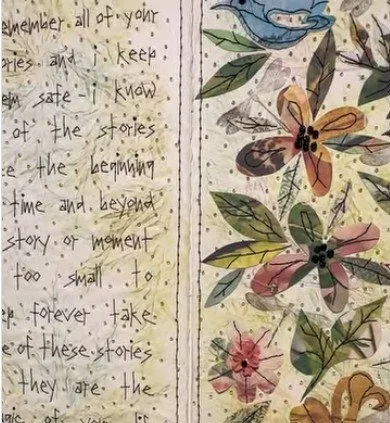 emember all of your
ories and i keep
em safe - i know
of the stories
e the beginning
time and beyond
story or moment
too small to
ep forever take
e of these stories
they are the
of you